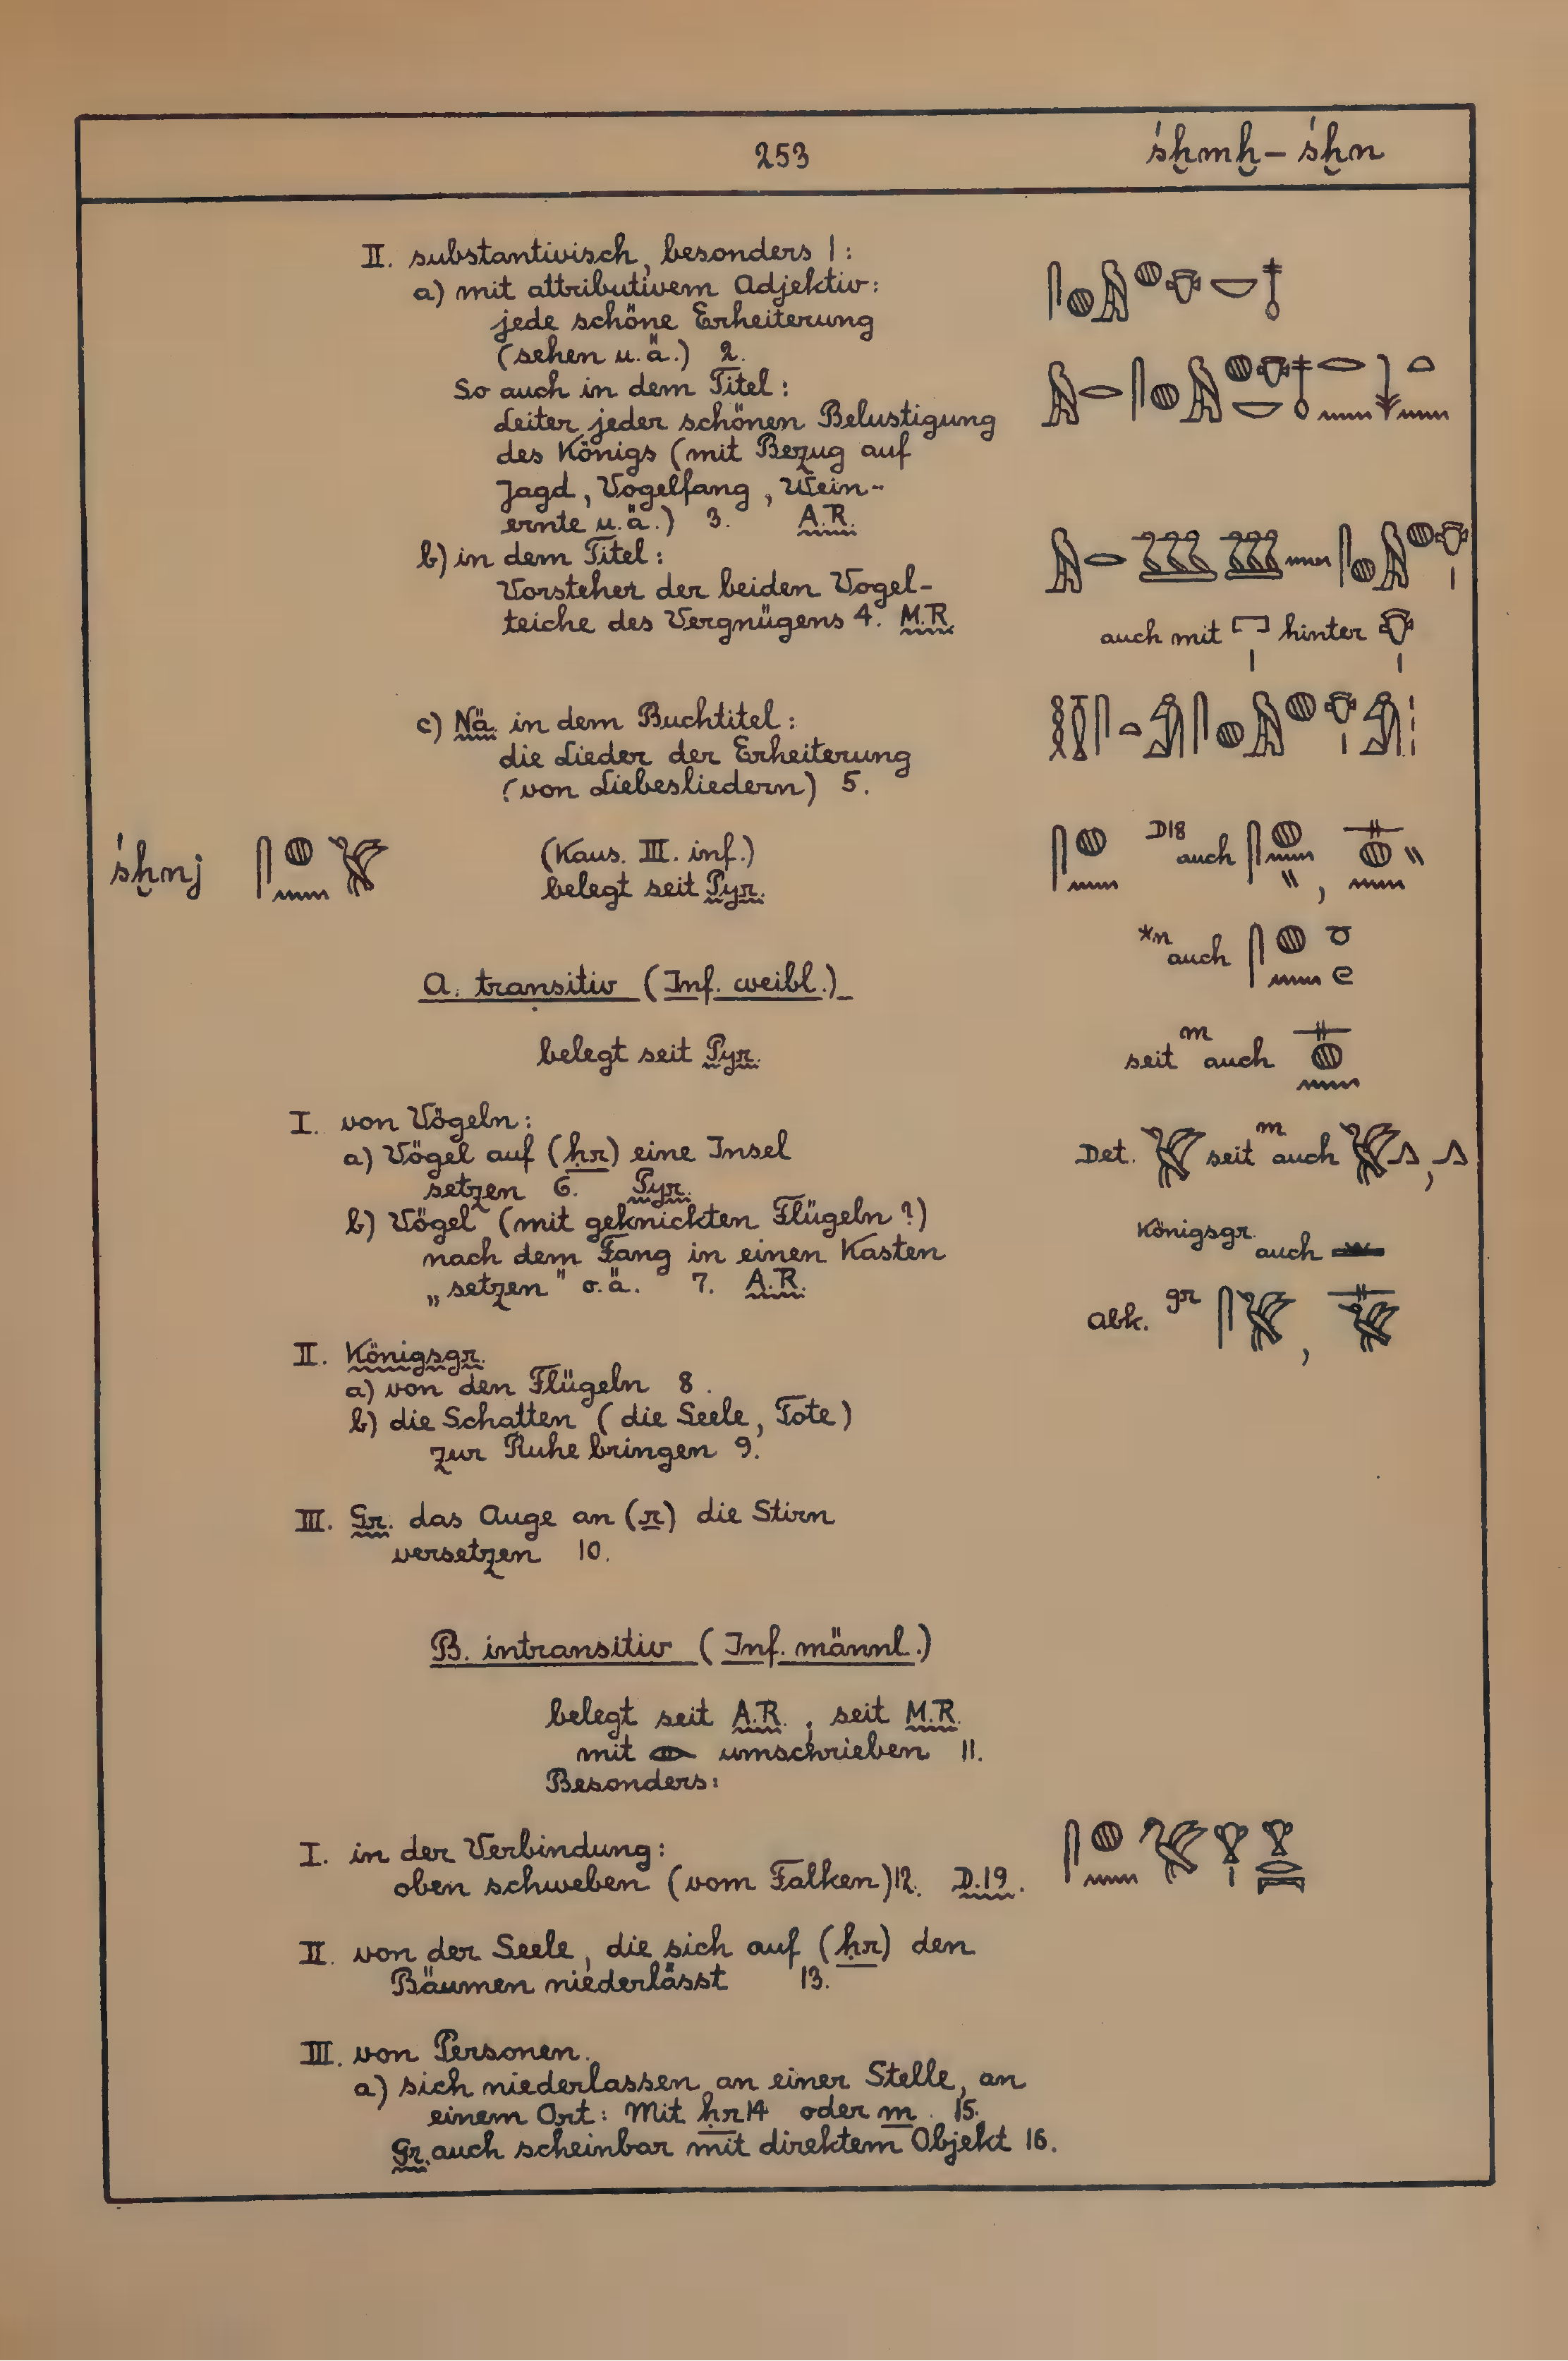 253
śḫmḫ – śḫn
II. substantivisch, besonders 1:
a) mit attributivem Adjektiv:
jede schöne Erheiterung
(sehen u.ä.) 2.
So auch in dem Titel:
Leiter jeder schönen Belustigung
des Königs (mit Bezug auf
Jagd, Vogelfang, Wein-
ernte u.ä.) 3. A.R.
b) in dem Titel:
Vorsteher der beiden Vogel-
teiche des Vergnügens 4. M.R.
auch mit hinter
c) Nä. in dem Buchtitel:
die Lieder der Erheiterung
(von Liebesliedern) 5.
śḫnj (Kaus. III. inf.)
belegt seit Pyr.
D18 auch ,
*n auch
A. transitiv (Inf. weibl.)
belegt seit Pyr.
seit m auch
I. von Vögeln:
a) Vögel auf (ḥr) eine Insel
setzen 6. Pyr.
b) Vögel (mit geknickten Flügeln?)
nach dem Fang in einen Kasten
„setzen" o.ä. 7. A.R.
Det. seit m auch ,
Königsgr. auch
Abk. gr ,
II. Königsgr.
a) von den Flügeln 8.
b) die Schatten (die Seele, Tote)
zur Ruhe bringen 9.
III. Gr. das Auge an (r) die Stirn
versetzen 10.
B. intransitiv (Inf. männl.)
belegt seit A.R., seit M.R.
mit umschrieben 11.
Besonders:
I. in der Verbindung:
oben schweben (vom Falken) 12. D.19.
II. von der Seele, die sich auf (ḥr) den
Bäumen niederlässt 13.
III. von Personen.
a) sich niederlassen an einer Stelle, an
einem Ort: Mit ḥr 14 oder m 15.
Gr. auch scheinbar mit direktem Objekt 16.